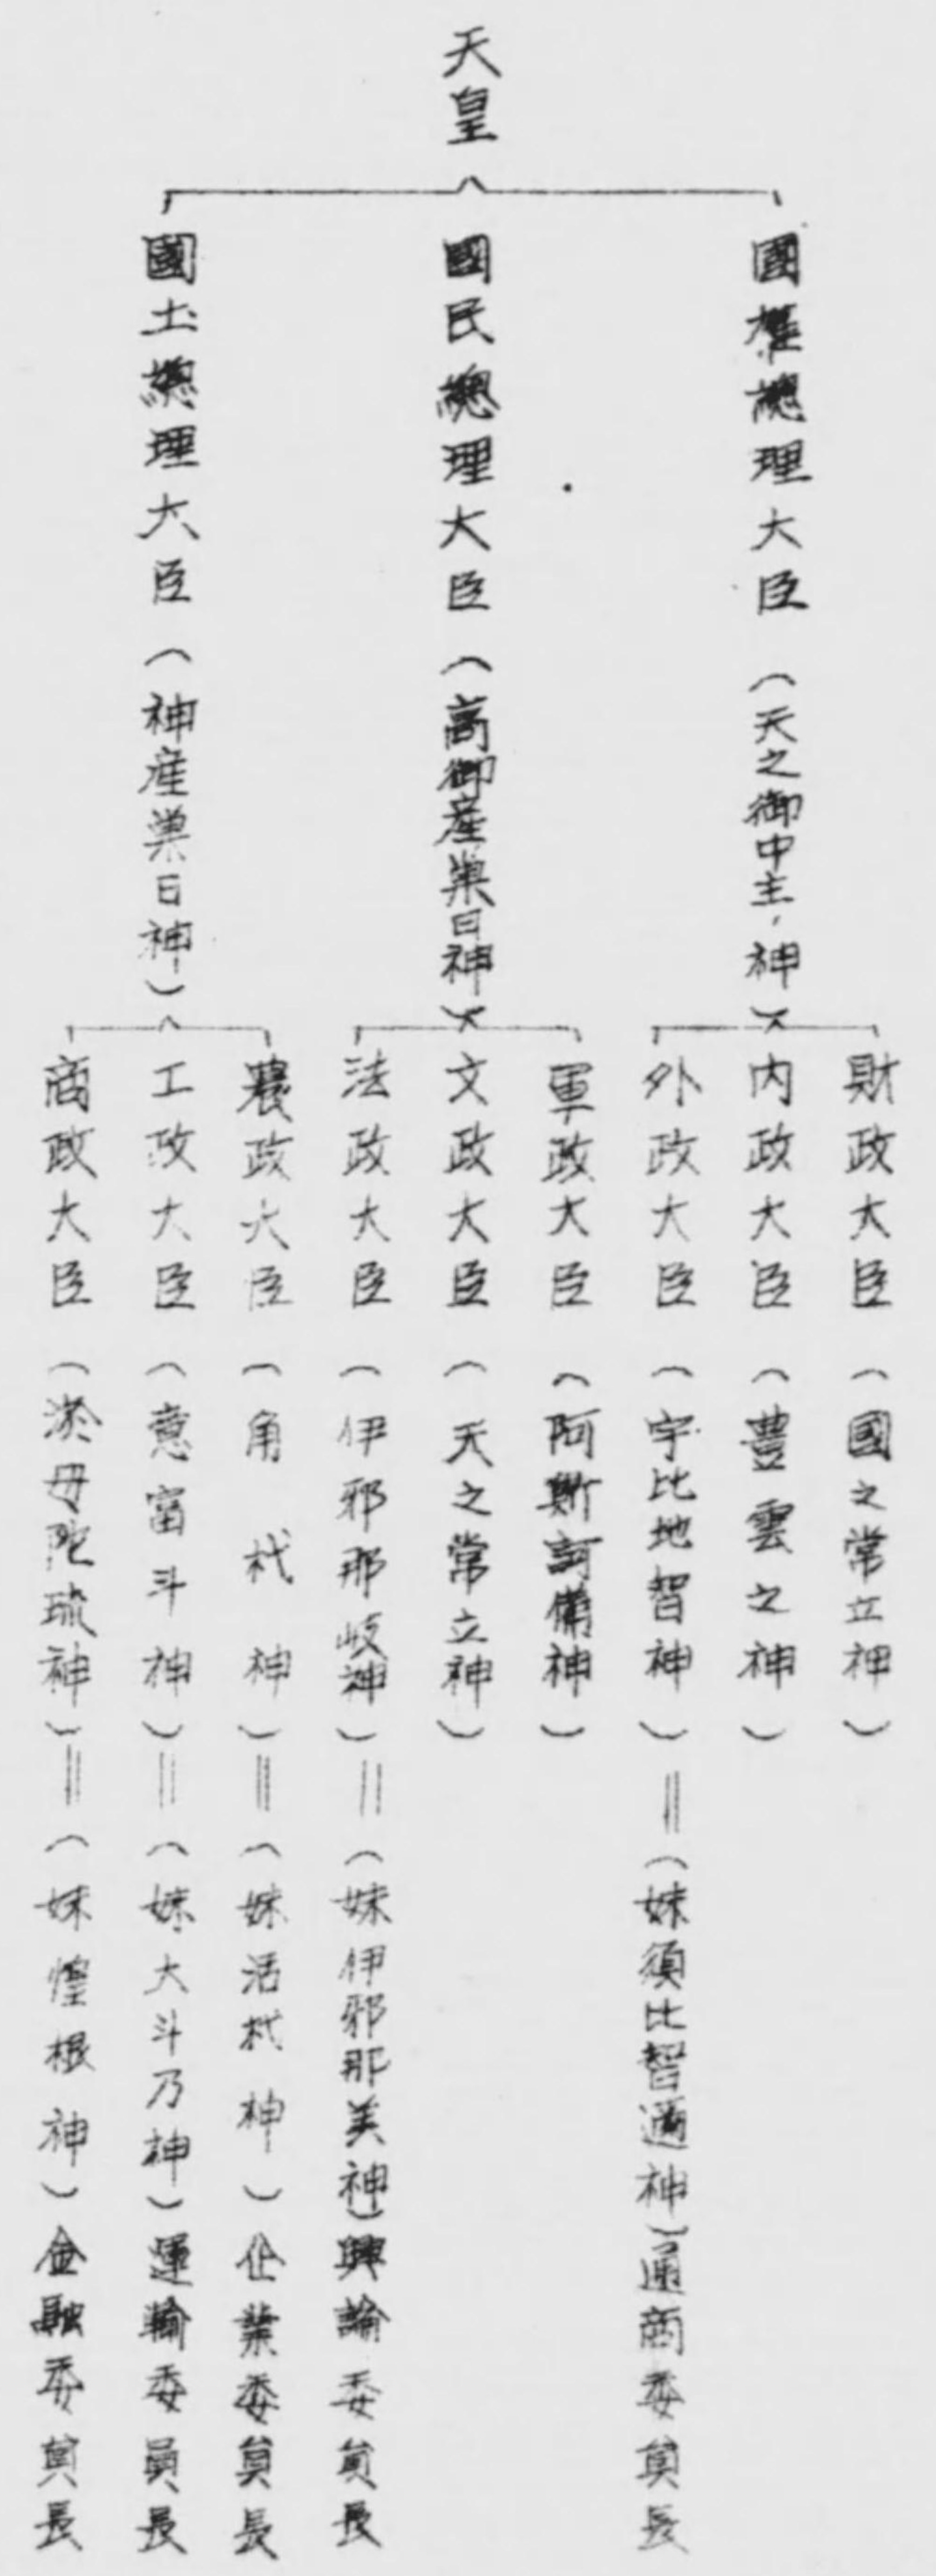 天皇
國權總理大臣（天之御中主神）
財政大臣（國之常立神）
內政大臣（豊雲之神）
外政大臣（宇比地智神）＝（妹須比智邇神）通商委員長
國民總理大臣（高御産巣日神）
軍政大臣（阿斯訶備神）
文政大臣（天之常立神）
法政大臣（伊邪那岐神）＝（妹伊邪那美神）輿論委員長
國土總理大臣（神産巣日神）
農政大臣（角杙神）＝（妹活杙神）企業委員長
工政大臣（意富斗神）＝（妹大斗乃神）運輸委員長
商政大臣（淤母陀琉神）＝（妹惶根神）金融委員長